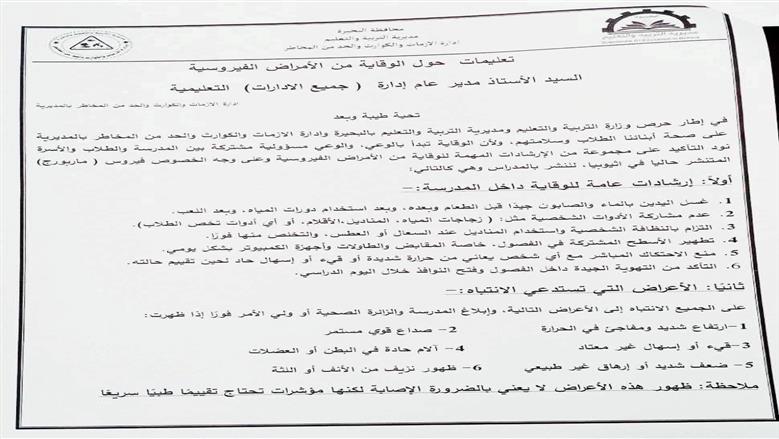 محافظة البحيرة
مديرية التربية والتعليم
إدارة الازمات والكوارث والحد من المخاطر
مديرية التربية والتعليم
تعليمات حول الوقاية من الأمراض الفيروسية
السيد الأستاذ مدير عام إدارة ( جميع الادارات) التعليمية
ادارة الازمات والكوارث والحد من المخاطر بالمديرية
تحية طيبة وبعد
في إطار حرص وزارة التربية والتعليم ومديرية التربية والتعليم بالبحيرة وإدارة الازمات والكوارث والحد من المخاطر بالمديرية
على صحة أبنائنا الطلاب وسلامتهم، ولأن الوقاية تبدأ بالوعي، والوعي مسؤولية مشتركة بين المدرسة والطلاب والأسرة
نود التأكيد على مجموعة من الإرشادات المهمة للوقاية من الأمراض الفيروسية وعلى وجه الخصوص فيروس ( ماربورج)
المتنشر حاليا في اثيوبيا، لتنشر بالمدراس وهي كالتالي:
أولاً: إرشادات عامة للوقاية داخل المدرسة:–
1. غسل اليدين بالماء والصابون جيدًا قبل الطعام وبعده، وبعد استخدام دورات المياه، وبعد اللعب.
2. عدم مشاركة الأدوات الشخصية مثل: ( زجاجات المياه، المناديل،الأقلام، أو أي أدوات تخص الطلاب).
3. التزام بالنظافة الشخصية واستخدام المناديل عند السعال أو العطس، والتخلص منها فورًا.
4. تطهير الأسطح المشتركة في الفصول، خاصة المقابض والطاولات وأجهزة الكمبيوتر بشكل يومي.
5. منع الاحتكاك المباشر مع أي شخص يعاني من حرارة شديدة أو قيء أو إسهال حاد لحين تقييم حالته.
6. التأكد من التهوية الجيدة داخل الفصول وفتح النوافذ خلال اليوم الدراسي.
ثانيًا: الأعراض التي تستدعي الانتباه:–
على الجميع الانتباه إلى الأعراض التالية، وإبلاغ المدرسة والزائرة الصحية أو ولي الأمر فورًا إذا ظهرت:
1–ارتفاع شديد ومفاجئ في الحرارة 2– صداع قوي مستمر
3–قيء أو إسهال غير معتاد 4– آلام حادة في البطن أو العضلات
5– ضعف شديد أو إرهاق غير طبيعي 6– ظهور نزيف من الأنف أو اللثة
ملاحظة: ظهور هذه الأعراض لا يعني بالضرورة الإصابة لكنها مؤشرات تحتاج تقييمًا طبيًا سريعًا